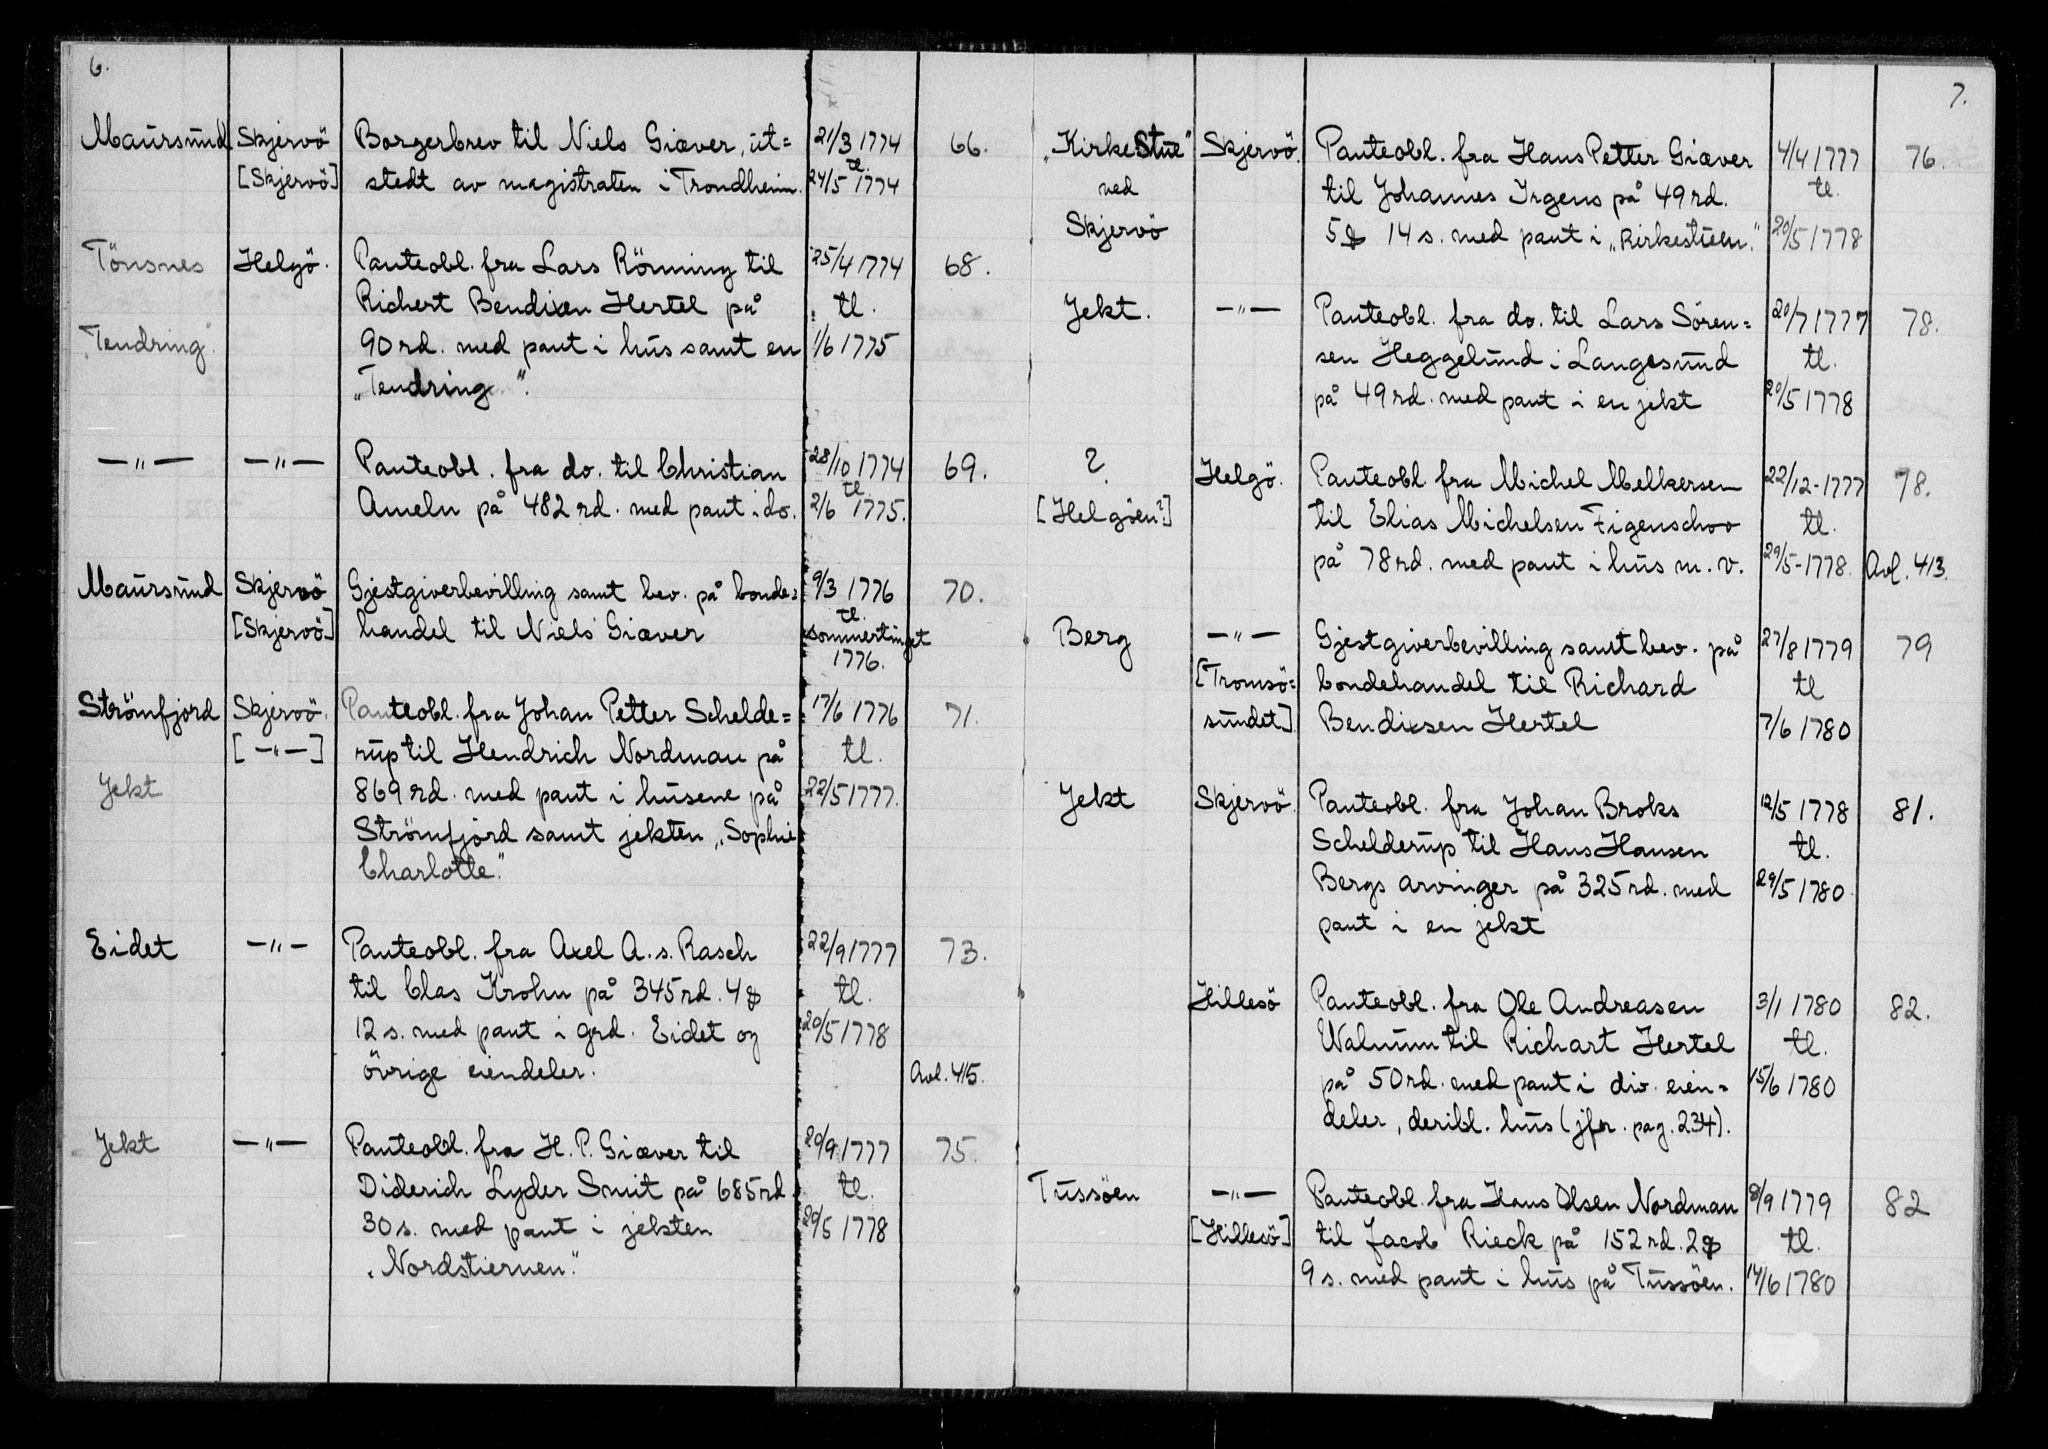 6.
Maursund Skjervö Borgerbrev til Niels Giæver, ut= 21/3 1774 66.
[Skjervö] stedt av magistraten i Trondheim. tl. 24/5 1774
Tönsnes Helgö. Panteobl. fra Lars Rönning til 25/4 1774 68.
Richert Bendixen Hertel på tl.
"Tendring" 90 rd. med pant i hus samt en 1/6 1775
„Tendring".
—"— —"— Panteobl. fra do. til Christian 28/10 1774 69.
Ameln på 482 rd. med pant i do. tl. 2/6 1775.
Maursund Skjervö Gjestgiverbevilling samt bev. på bonde= 9/3 1776 70.
[Skjervö] handel til Niels Giæver tl. sommertinget
1776.
Strömfjord Skjervö. Panteobl. fra Johan Petter Schelde= 17/6 1776 71.
[—"—] rup til Hendrich Nordman på tl.
Jekt 869 rd. med pant i husene på 22/5 1777.
Strömfjord samt jekten „Sophie
Charlotte."
Eidet —"— Panteobl. fra Axel A.s. Rasch 22/9 1777 73.
til Clas Krohn på 345 rd. 4 ꝥ tl.
12 s. med pant i grd. Eidet og 20/5 1778
övrige eiendeler. Avl. 415.
Jekt —"— Panteobl. fra H. P. Giæver til 20/9 1777 75.
Diderich Lyder Smit på 685 rd. tl.
30 s. med pant i jekten 20/5 1778
„Nordstiernen".
7.
„Kirke Stue" Skjervö. Panteobl. fra Hans Petter Giæver 4/4 1777 76.
ved til Johannes Irgens på 49 rd. tl.
Skjervö 5 ꝥ 14 s. med pant i „Kirkestuen." 20/5 1778
Jekt. —"— Panteobl. fra do. til Lars Sören= 20/7 1777 78.
sen Heggelund i Langesund tl.
på 49 rd. med pant i en jekt 20/5 1778
? Helgö. Panteobl. fra Michel Melkersen 22/12-1777 78.
[Helgöen?] til Elias Michelsen Figenschoo tl.
på 78 rd. med pant i hus m. v. 29/5-1778. Avl. 413.
Berg —"— Gjestgiverbevilling samt bev. på 27/8 1779 79
[Tromsö= bondehandel til Richard tl
sundet] Bendixsen Hertel 7/6 1780
Jekt Skjervö. Panteobl. fra Johan Broks 12/5 1778 81.
Schelderup til Hans Hansen tl.
Bergs arvinger på 325 rd. med 29/5 1780.
pant i en jekt
Hillesö Panteobl. fra Ole Andreasen 3/1 1780 82.
Walnum til Richart Hertel tl.
på 50 rd. med pant i div. eien= 15/6 1780
deler, deribl. hus (jfr. pag. 234).
Tussöen —"— Panteobl. fra Hans Olsen Nordman 8/9 1779 82
[Hillesö] til Jacob Rieck på 152 rd. 2 ꝥ tl.
9 s. med pant i hus på Tussöen. 14/6 1780